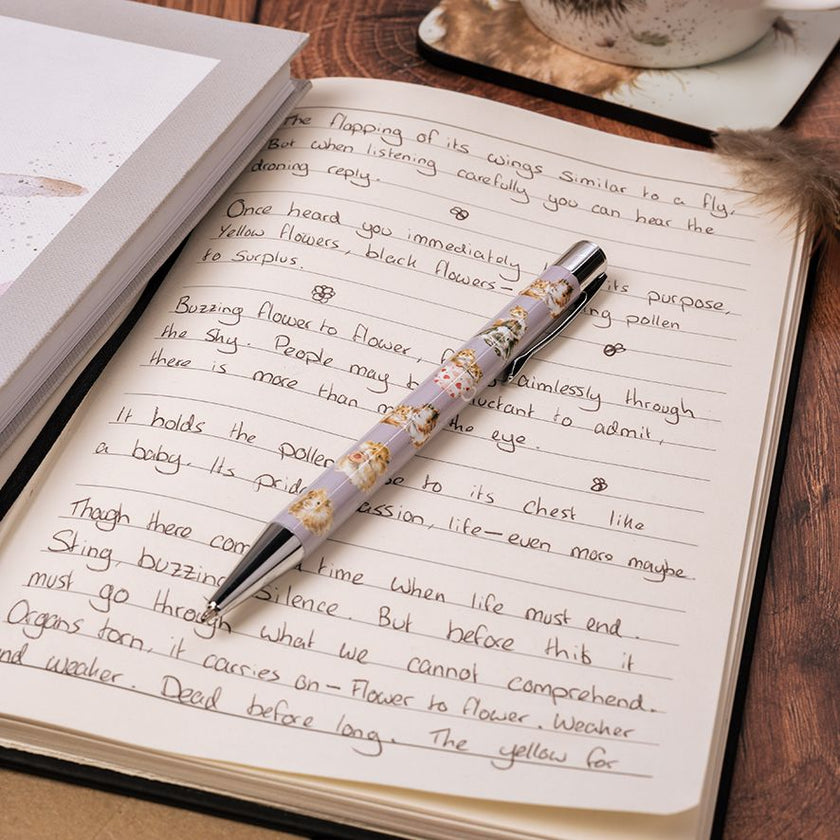 The flapping of its wings similar to a fly,
But when listening carefully you can hear the
droning reply.
Once heard you immediately its purpose,
Yellow flowers, black flowers- ing pollen
to surplus.
Buzzing flower to flower, aimlessly through
the sky. People may be luctant to admit,
there is more than m the eye.
It holds the pollen se to its chest like
a baby. Its pride assion, life-even more maybe.
Though there com a time when life must end.
Sting, buzzing Silence. But before this it
must go through what we cannot comprehend.
Organs torn, it carries on- Flower to flower. Weaker
nd weaker. Dead before long. The yellow for